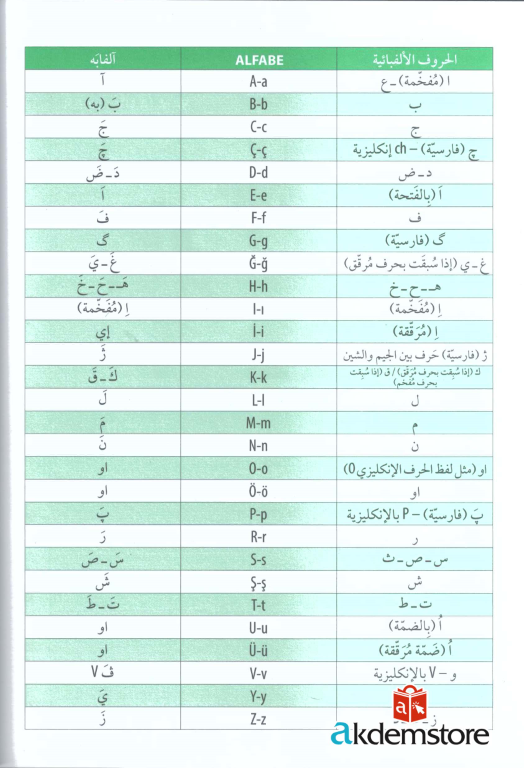 الحروف الألفبائية ALFABE آلفابَه
ا (مُفخّمة) ـ ع A-a آ
ب B-b بَ (به)
ج C-c جَ
چ (فارسيّة) – ch إنكليزية Ç-ç چَ
د ـ ض D-d دَ ـ ضَ
اَ (بِالفَتحة) E-e اَ
ف F-f فَ
گ (فارسيّة) G-g گ
غ ـ ي (إذا سُبقَت بحرف مُرقّق) Ğ-ğ غَ ـ يَ
هـ ـ ح ـ خ H-h هَـ ـ حَ ـ خَ
اِ (مُفَخّمة) I-ı اِ (مُفَخّمة)
اِ (مُرَقّقة) İ-i إي
ژ (فارسيّة) حَرف بين الجيم والشين J-j ژَ
ك (إذا سُبِقَت بحرف مُرَقّق) / ق (إذا سُبِقَت K-k كَ ـ قَ
بحرف مُفخّم)
ل L-l لَ
م M-m مَ
ن N-n نَ
او (مثل لفظ الحرف الإنكليزي O) O-o او
او Ö-ö او
پَ (فارسيّة) – P بالإنكليزية P-p پَ
ر R-r رَ
س ـ ص ـ ث S-s سَ ـ صَ
ش Ş-ş شَ
ت ـ ط T-t تَ ـ طَ
اُ (بِالضمّة) U-u او
اُ (ضَمّة مُرَقّقة) Ü-ü او
و – V بالإنكليزية V-v ڤَ V
Y-y يَ
ز Z-z زَ
a
akdemstore